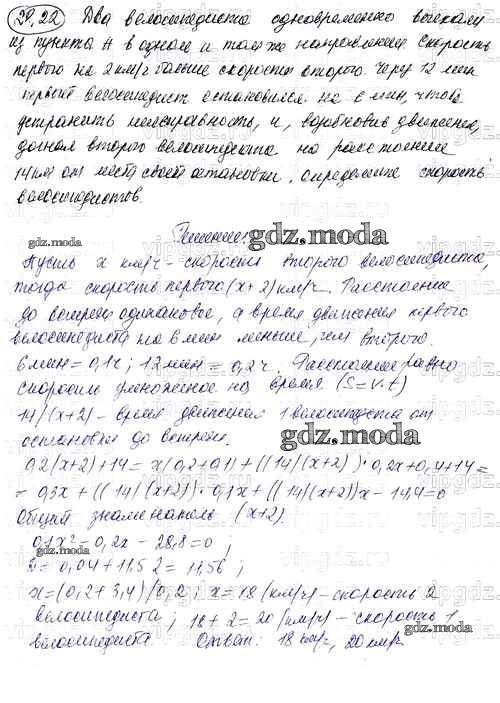 29.22 Два велосипедиста одновременно выехали
из пункта А в одном и том же направлении. Скорость
первого на 2 км/ч больше скорости второго. Через 12 мин
первый велосипедист остановился на 6 мин, чтобы
устранить неисправность, и, возобновив движение,
догнал второго велосипедиста на расстоянии
14 км от места своей остановки. Определите скорость
велосипедистов.
Решение:
gdz.moda
gdz.moda
Пусть x км/ч - скорость второго велосипедиста,
тогда скорость первого (x+2) км/ч. Расстояние
до встречи одинаковое, а время движения первого
велосипедиста на 6 мин меньше, чем второго.
6 мин = 0,1ч; 12 мин = 0,2ч. Расстояние равно
скорости умноженное на время (S=v.t)
14/(x+2) - время движения 1 велосипедиста от
остановки до встречи.
gdz.moda
0,2(x+2)+14 = x(0,2+0,1)+((14/(x+2))·0,2x+0,4+14=
= 0,3x+((14/(x+2))·0,1x+((14/(x+2))x-14,4=0
Общий знаменатель (x+2).
0,1x²-0,2x-28,8=0;
gdz.moda
Д=0,04+11,52=11,56;
x=(0,2+3,4)/0,2; x=18 (км/ч) - скорость 2
велосипедиста; 18+2=20 (км/ч) - скорость 1
gdz.moda
велосипедиста. Ответ: 18 км/ч, 20 км/ч